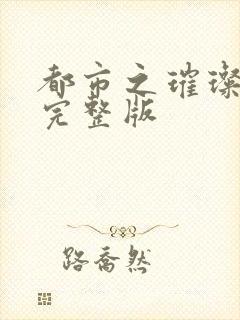 都市之璀璨
完整版
路乔然